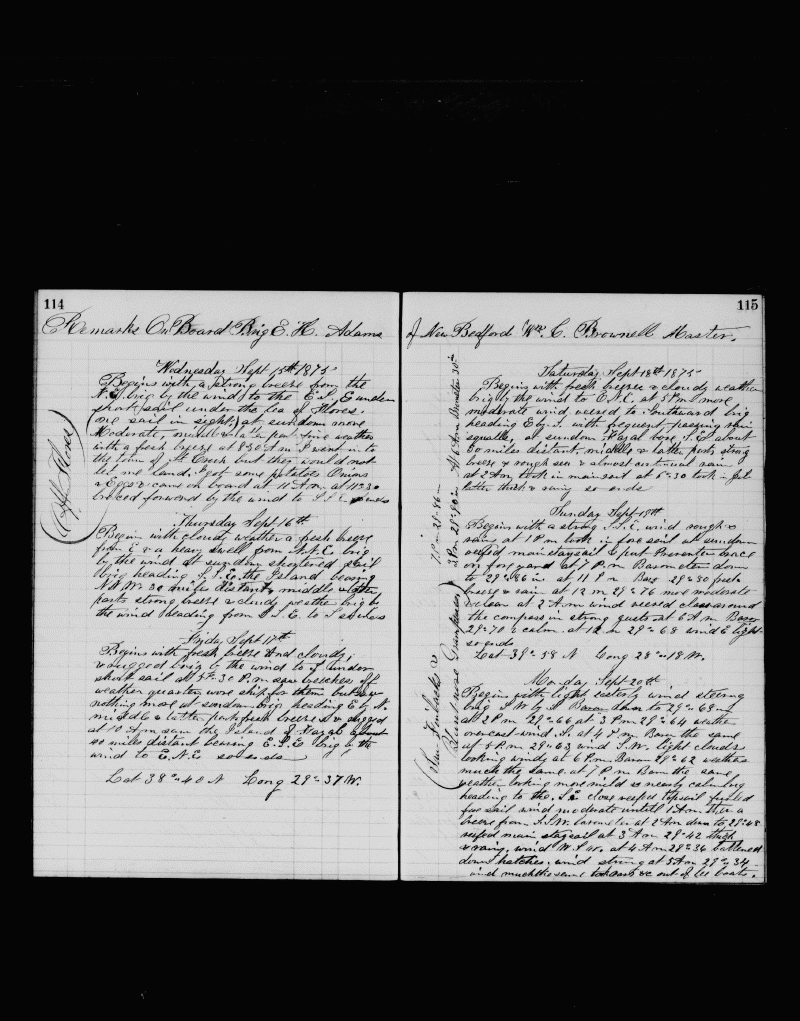 114
Remarks On Board Brig E. H. Adams
Wednesday Sept 15th 1875
Begins with a strong breeze from the
N.E. brig by the wind to the E.S.E under
short sail under the lea of Flores
one sail in sight, at sundown more
Moderate, middle & later part fine weather
with a fresh breeze at 8.30 A.m. I went in to
the town of Cruch but they would not
let me land. got some potatoes Onions
& Eggs & came on board at 11 A.m. at 11.30
braced forward by the wind to S.S.E. ends
(Off Flores)
Thursday Sept 16th
Begins with cloudy weather a fresh breeze
from E & a heavy swell from N.E. brig
by the wind at sundown shortened sail
brig heading S.S.E. the Island bearing
N.N.W. 30 miles distant, middle & latter
parts strong breeze & cloudy weather brig by
the wind heading from S.S.E. to S so ends
Friday Sept 17th
Begins with fresh breeze and cloudy,
& rugged brig by the wind to S under
short sail at 5h-30 P.m saw breeches off
weather quarter, wore ship for them but saw
nothing more at sundown brig heading E by N.
middle & latter part fresh breeze & rugged
at 10 A.m saw the Island of Fayal about
40 miles distant bearing E.S.E brig by the
wind to E.N.E so ends
Lat 38°-40 N Long 29°-37 W.
115
of New Bedford Wm C. Brownell Master.
Saturday Sept 18th 1875
Begins with fresh breeze & cloudy weather
brig by the wind to E.N.E. at 5 P.m more
moderate wind veered to Southward brig
heading E by S. with frequent passing rain
squalls, at sundown Fayal bore S.E about
30 miles distant, middle & latter parts strong
breeze & rough sea & almost continual rain
at 2 A.m took in mainsail at 6h-30 took in Jib
latter thick & rainy so ends
Sunday Sept 19th
Begins with a strong S.S.E. wind rough &
rains at 1 P.m took in fore sail at sundown
reefed main staysail & put Preventer brace
on fore yard at 7 P.m Barometer down
to 29°-86 in at 11 P.m Bar 29°-80 fresh
breeze & rain at 12 m 29°-76 more moderate
& clear at 2 A.m wind veered clear around
the compass in strong gusts at 6 A.m Barom
29°-70 & calm. at 12 m 29°-68 wind E light
so ends
Lat 39°-58 N Long 28°-18 W.
Monday Sept 20th
Begins with light easterly wind steering
brig S.W. by S Barom down to 29°-68 in
at 2 P.m 29°-66 at 3 P.m 29°-64 weather
overcast wind S. at 4 P.m. Barom the same
at 5 P.m 29°-63 wind S.W. light clouds
looking windy at 6 P.m. Barom 29°-62 weather
much the same at 7 P.m Barom the same
weather looking more mild & nearly calm brig
heading to the S.E close reefed topsail furled
fore sail wind moderate untill 1 A.m then a
breeze from S.S.W. barometer at 2 A.m down to 29°-48
reefed main staysail at 3 A.m 29°-42 thick
& rainy, wind W.S.W. at 4 A.m 28°-36 battened
down hatches, wind strong at 5 A.m 29°-34
wind much the same &c out of lee boats.